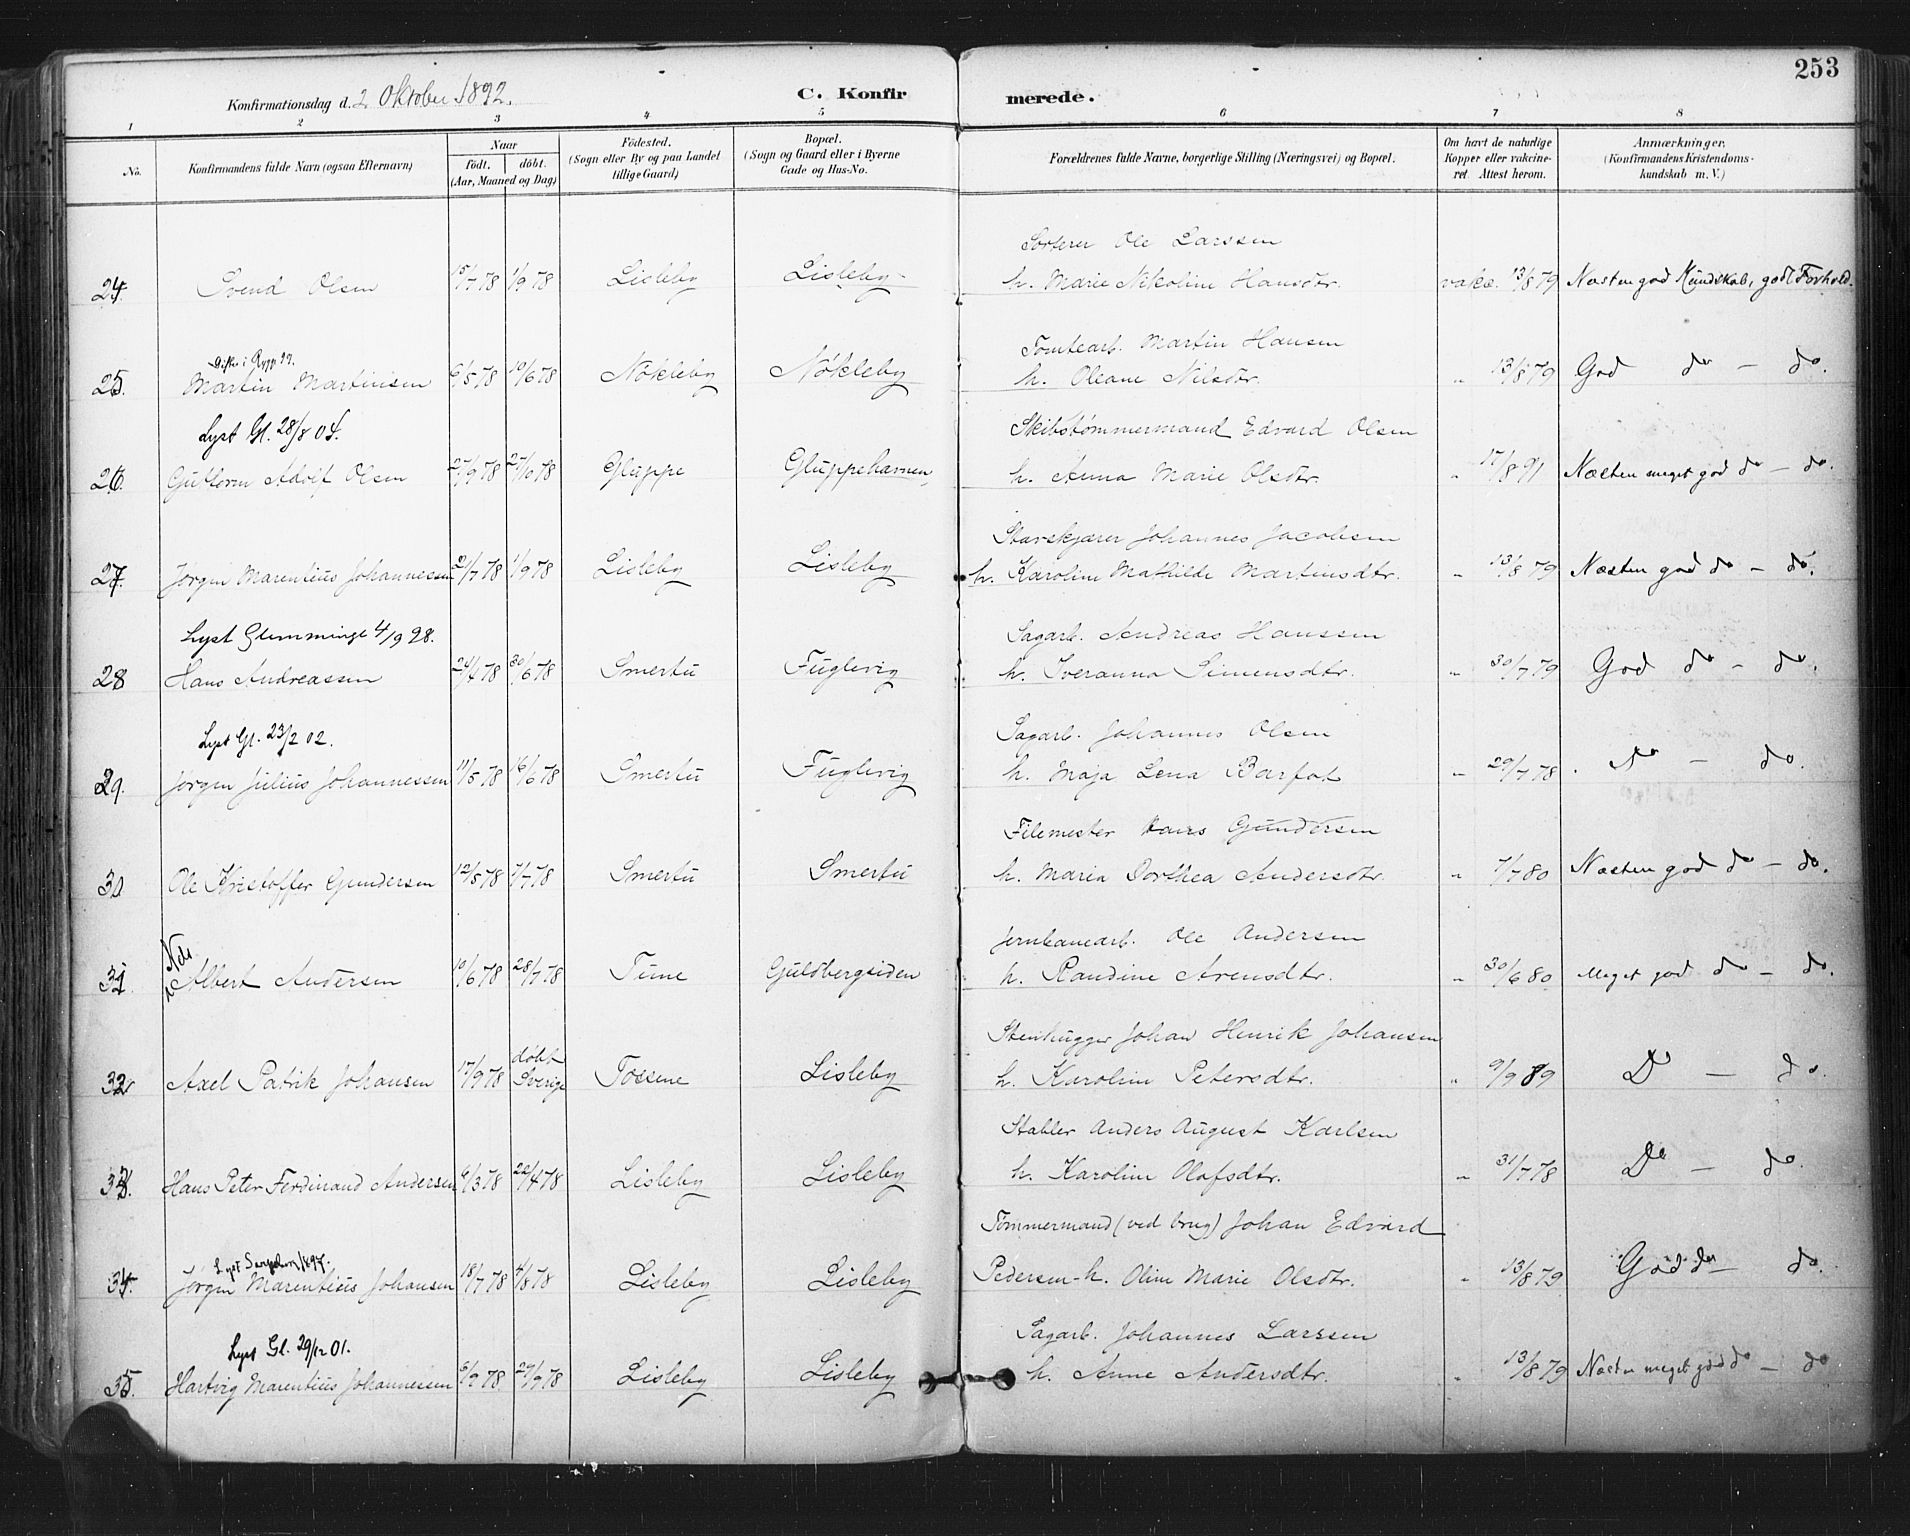 253
Konfirmationsdag d. 2 Oktober 1892.
C. Konfirmerede.
1 2 3 4 5 6 7 8
No.
Konfirmandens fulde Navn (ogsaa Efternavn)
Naar
födt. döbt.
(Aar, Maaned og Dag)
Födested.
(Sogn eller By og paa Landet
tillige Gaard)
Bopæl.
(Sogn og Gaard eller i Byerne
Gade og Hus-No.
Forældrenes fulde Navne, borgerlige Stilling (Næringsvei) og Bopæl.
Om havt de naturlige
Kopper eller vakcine-
ret. Attest herom.
Anmærkninger.
(Konfirmandens Kristendoms-
kundskab m. V.)
Sorterer Ole Larssen
24. Svend Olsen 15/7 78 1/9 78 Lisleby Lisleby h. Marie Nikoline Hansdtr. vakc. 13/8 79 Næsten god Kundskab, godt Forhold.
Tomtearb. Martin Hansen
25. Martin Martinisen 6/5 78 10/6 78 Nökleby Nökleby h. Oleane Nilsdtr. " 13/8 79 God do - do.
Lyst Gl. 28/8 04. Skibstömmermand Edvard Olsen
26. Guttorm Adolf Olsen 27/9 78 27/10 78 Gluppe Gluppehavnen h. Anna Marie Olsdtr. " 17/8 91 Næsten meget god do - do.
Stavskjærer Johannes Jacobsen
27. Jörgen Marentius Johannessen 21/7 78 1/9 78 Lisleby Lisleby h. Karoline Mathilde Martinsdtr. " 13/8 79 Næsten god do - do.
Lyst Glemminge 4/9 98. Sagarb. Andreas Hanssen
28 Hans Andreassen 24/4 78 30/6 78 Smertu Fuglevig h. Sveranna Simensdtr. " 30/7 79 God do - do.
Lyst Gl. 23/2 02. Sagarb. Johannes Olsen
29. Jörgen Julius Johannessen 11/5 78 16/6 78 Smertu Fuglevig h. Maja Lena Barfot " 29/7 78 . do - do.
Filemester Hans Gundersen
30 Ole Kristoffer Gundersen 12/5 78 7/7 78 Smertu Smertu h. Maria Dorthea Andersdtr. " 7/7 80 Næsten god do - do.
Jernbanearb. Ole Andersen
31. Albert Andersen 10/6 78 28/7 78 Tune Guldbergsiden h. Randine Arensdtr. " 30/6 80 Meget god do - do.
Stenhugger Johan Henrik Johansen
32 Axel Patrik Johansen 17/9 78 döbt Sverige Tossene Lisleby h. Karoline Petersdtr. " 9/9 89 Do - do.
Stabler Anders August Karlsen
33. Hans Peter Ferdinand Andersen 6/3 78 22/4 78 Lisleby Lisleby h. Karoline Olafsdtr. " 31/7 78 Do - do.
Tömmermand (ved brug) Johan Edvard
34. Jörgen Marentius Johansen 18/7 78 4/8 78 Lisleby Lisleby Pedersen - h. Oline Marie Olsdtr. " 13/8 79 God do - do.
Lyst Gl. 29/12 01. Sagarb. Johannes Larssen
35. Hartvig Marentius Johannessen 6/9 78 29/9 78 Lisleby Lisleby h. Anne Andersdtr. " 13/8 79 Næsten meget god do - do